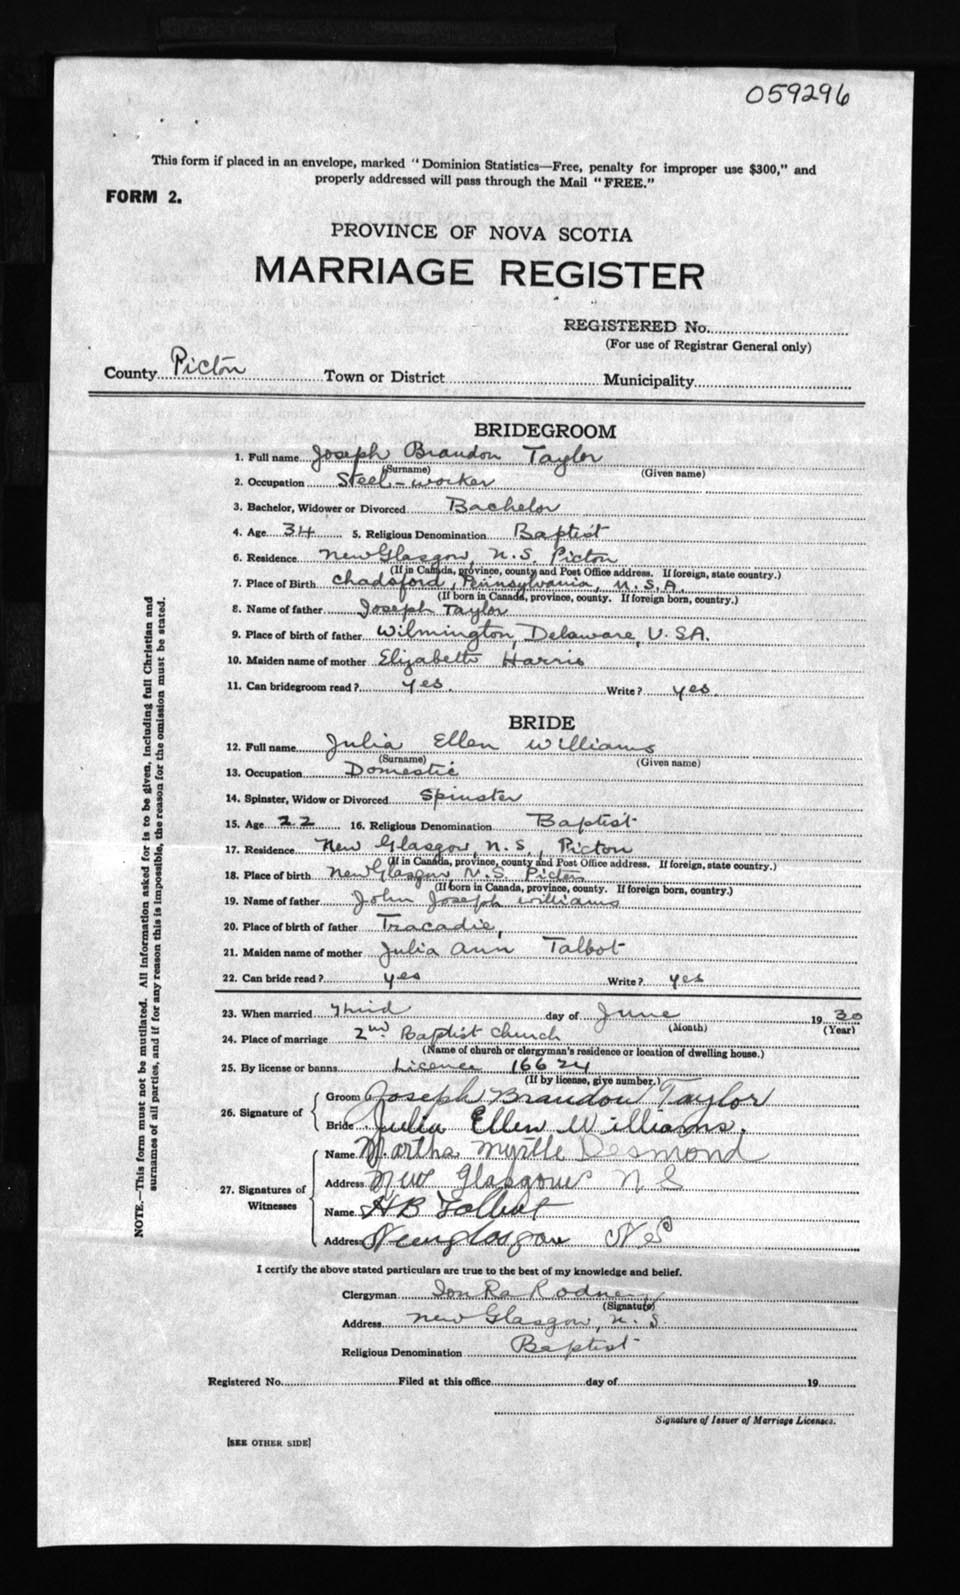 059296
This form if placed in an envelope, marked "Dominion Statistics—Free, penalty for improper use $300," and
properly addressed will pass through the Mail "FREE."
FORM 2.
PROVINCE OF NOVA SCOTIA
MARRIAGE REGISTER
REGISTERED No.
(For use of Registrar General only)
County Picton Town or District Municipality
BRIDEGROOM
1. Full name Joseph Brandon Taylor
(Surname) (Given name)
2. Occupation Steel-worker
3. Bachelor, Widower or Divorced Bachelor
4. Age 34 5. Religious Denomination Baptist
6. Residence New Glasgow, N.S. Picton
(If in Canada, province, county and Post Office address. If foreign, state country.)
7. Place of Birth Chadsford, Pennsylvania, U.S.A.
(If born in Canada, province, county. If foreign born, country.)
8. Name of father Joseph Taylor
9. Place of birth of father Wilmington, Delaware, U.SA.
10. Maiden name of mother Elizabeth Harris
11. Can bridegroom read? yes. Write? yes.
BRIDE
12. Full name Julia Ellen Williams
(Surname) (Given name)
13. Occupation Domestic
14. Spinster, Widow or Divorced Spinster
15. Age 22 16. Religious Denomination Baptist
17. Residence New Glasgow, N.S., Picton
(If in Canada, province, county and Post Office address. If foreign, state country.)
18. Place of birth New Glasgow, N.S. Picton
(If born in Canada, province, county. If foreign born, country.)
19. Name of father John Joseph Williams
20. Place of birth of father Tracadie,
21. Maiden name of mother Julia Ann Talbot
22. Can bride read? yes Write? yes
23. When married Third day of June 1930
(Month) (Year)
24. Place of marriage 2nd Baptist Church
(Name of church or clergyman's residence or location of dwelling house.)
25. By license or banns Licence 16624
(If by license, give number.)
26. Signature of
Groom Joseph Brandon Taylor
Bride Julia Ellen Williams.
27. Signatures of Witnesses
Name Martha Myrtle Desmond
Address New Glasgow N S
Name HB Talbot
Address New glasgow NS
I certify the above stated particulars are true to the best of my knowledge and belief.
Clergyman Rodney
(Signature)
Address New Glasgow, N. S.
Religious Denomination Baptist
Registered No. Filed at this office day of 19
Signature of Issuer of Marriage Licenses.
[SEE OTHER SIDE]
NOTE.—This form must not be mutilated. All information asked for is to be given, including full Christian and
surnames of all parties, and if for any reason this is impossible, the reason for the omission must be stated.